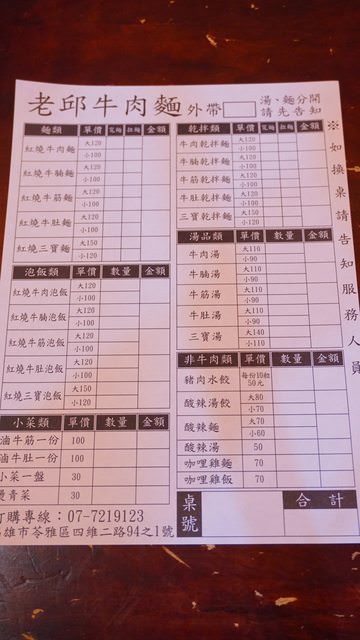 老邱牛肉麵 外帶 湯、麵分開
請先告知
※如換桌請告知服務人員
麵類 單價 寬麵 拉麵 金額
紅燒牛肉麵 大120 小100
紅燒牛腩麵 大120 小100
紅燒牛筋麵 大120 小100
紅燒牛肚麵 大120 小100
紅燒三寶麵 大150 小120
泡飯類 單價 數量 金額
紅燒牛肉泡飯 大120 小100
紅燒牛腩泡飯 大120 小100
紅燒牛筋泡飯 大120 小100
紅燒牛肚泡飯 大120 小100
紅燒三寶泡飯 大150 小120
小菜類 單價 數量 金額
滷牛筋一份 100
滷牛肚一份 100
小菜一盤 30
燙青菜 30
訂購專線：07-7219123
高雄市苓雅區四維二路94之1號
乾拌類 單價 寬麵 拉麵 金額
牛肉乾拌麵 大120 小100
牛腩乾拌麵 大120 小100
牛筋乾拌麵 大120 小100
牛肚乾拌麵 大120 小100
三寶乾拌麵 大150 小120
湯品類 單價 數量 金額
牛肉湯 大110 小90
牛腩湯 大110 小90
牛筋湯 大110 小90
牛肚湯 大110 小90
三寶湯 大140 小110
非牛肉類 單價 數量 金額
豬肉水餃 每份10粒 50元
酸辣湯餃 大80 小70
酸辣麵 大70 小60
酸辣湯 50
咖哩雞麵 70
咖哩雞飯 70
桌號 合計